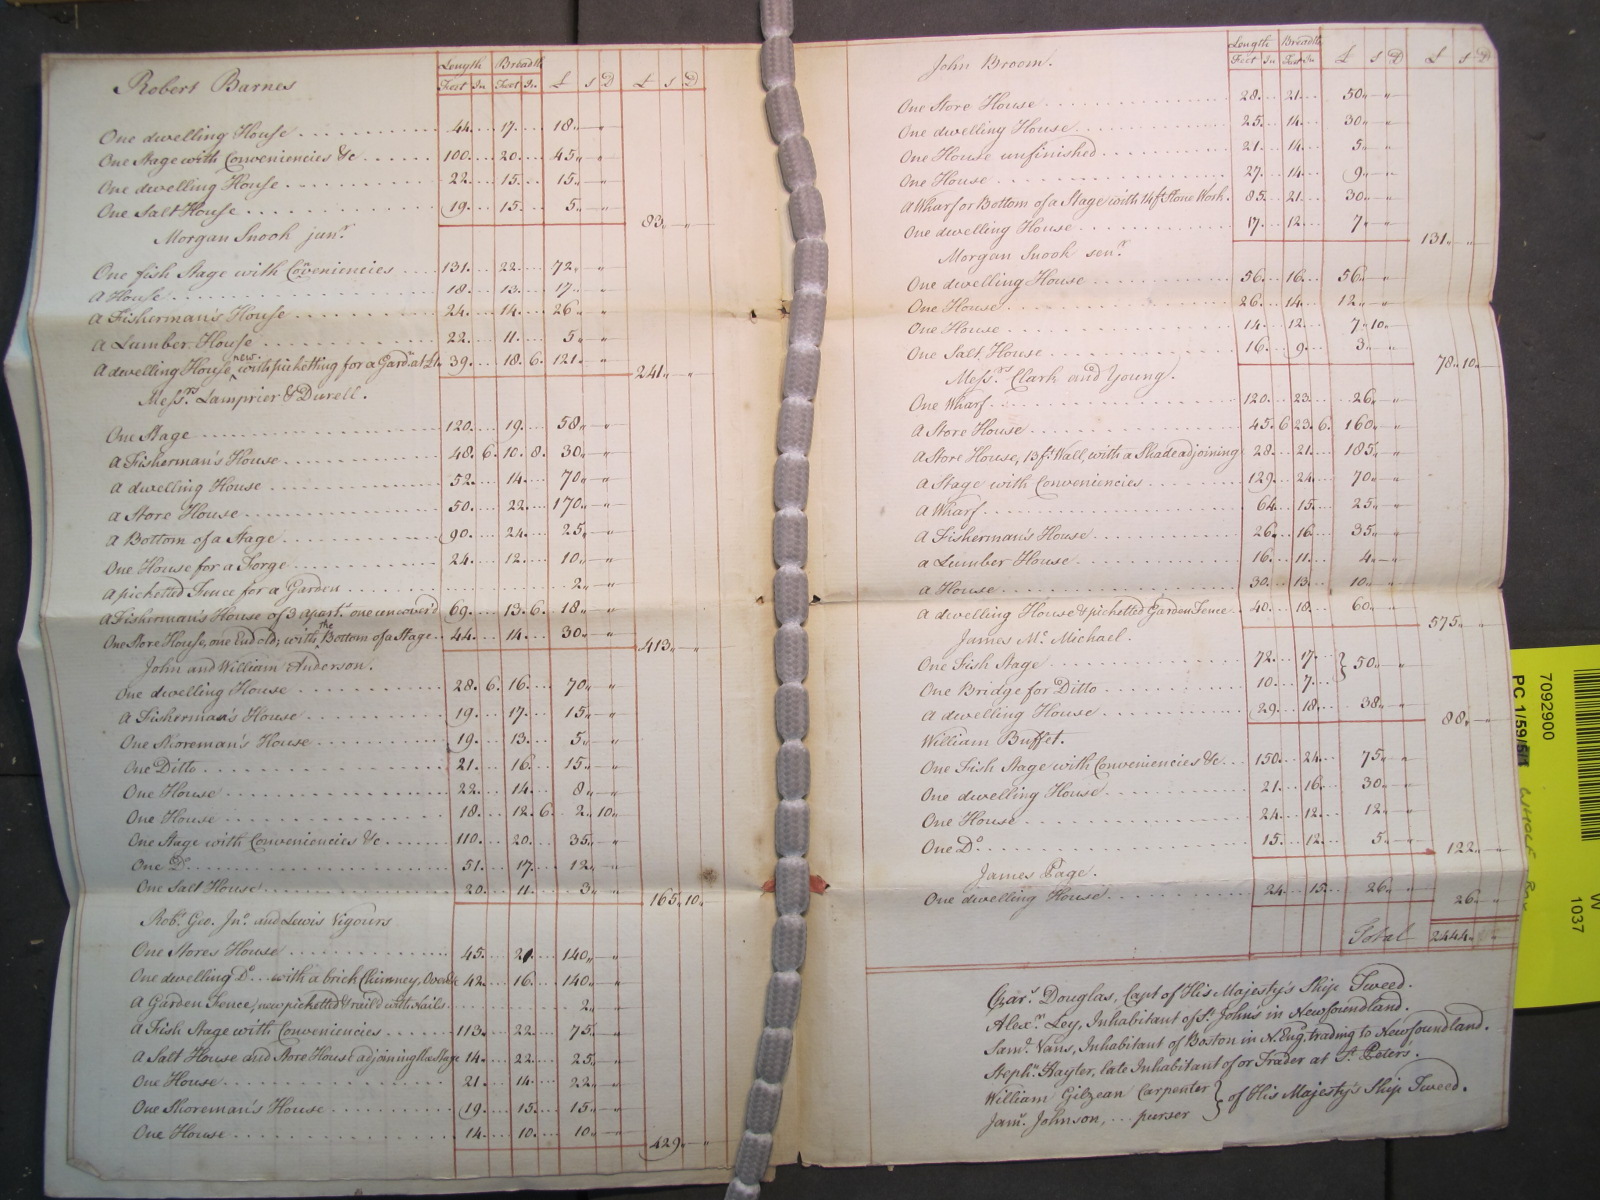 Robert Barnes
Length Breadth
Feet In Feet In £ s D £ s D
One dwelling House 44 17 18 „ — „
One Stage with Conveniencies &c 100 20 45 „ — „
One dwelling House 22 15 15 „ — „
One Salt House 19 15 5 „ — „
83 „ — „
Morgan Snook junr.
One fish Stage with Conveniencies 131 22 72 „ — „
A House 18 13 17 „ — „
A Fisherman's House 24 14 26 „ — „
A Lumber House 22 11 5 „ — „
A dwelling House new with picketting for a Gardn. at 39 18 6 121 „ — „
241 „ — „
Messrs. Lamprier & Durell.
One Stage 120 19 58 „ — „
A Fisherman's House 48 6 10 8 30 „ — „
A dwelling House 52 14 70 „ — „
A Store House 50 22 170 „ — „
A Bottom of a Stage 90 24 25 „ — „
One House for a Forge 24 12 10 „ — „
A picketted Fence for a Garden 2 „ — „
A Fisherman's House of 3 apart. one uncover'd 69 13 6 18 „ — „
One Store House, one End old; with the Bottom of a Stage 44 14 30 „ — „
413 „ — „
John and William Anderson.
One dwelling House 28 6 16 70 „ — „
A Fisherman's House 19 17 15 „ — „
One Shoreman's House 19 13 5 „ — „
One Ditto 21 16 15 „ — „
One House 22 14 8 „ — „
One House 18 12 6 2 „ 10 „
One Stage with Conveniencies &c 110 20 35 „ — „
One Do. 51 17 12 „ — „
One Salt House 20 11 3 „ — „
165 „ 10 „
Robt. Geo. Jno. and Lewis Vigours
One Stores House 45 21 140 „ — „
One dwelling Do. with a brick Chimney, 42 16 140 „ — „
A Garden Fence, new picketted & rail'd with Nails 2 „ — „
A Fish Stage with Conveniencies 113 22 75 „ — „
A Salt House and Store House adjoining the Stage 14 22 25 „ — „
One House 21 14 22 „ — „
One Shoreman's House 19 15 15 „ — „
One House 14 10 10 „ — „
429 „ — „
John Broom.
Length Breadth
Feet In Feet In £ s D £ s D
One Store House 28 21 50 „ — „
One dwelling House 25 14 30 „ — „
One House unfinished 21 14 5 „ — „
One House 27 14 9 „ — „
A Wharf or Bottom of a Stage with 14 ft Stone Work 85 21 30 „ — „
One dwelling House 17 12 7 „ — „
131 „ — „
Morgan Snook senr.
One dwelling House 56 16 56 „ — „
One House 26 14 12 „ — „
One House 14 12 7 „ 10 „
One Salt House 16 9 3 „ — „
78 „ 10 „
Messrs. Clark and Young.
One Wharf 120 23 26 „ — „
A Store House 45 6 23 6 160 „ — „
A Store House, 13 ft. Wall, with a Shade adjoining 28 21 185 „ — „
A Stage with Conveniencies 129 24 70 „ — „
A Wharf 64 15 25 „ — „
A Fisherman's House 26 16 35 „ — „
A Lumber House 16 11 4 „ — „
A House 30 13 10 „ — „
A dwelling House & picketted Garden Fence 40 18 60 „ — „
575 „ — „
James Mc. Michael.
One Fish Stage 72 17 } 50 „ — „
One Bridge for Ditto 10 7
A dwelling House 29 18 38 „ — „
88 „ — „
William Buffet.
One Fish Stage with Conveniencies &c 150 24 75 „ — „
One dwelling House 21 16 30 „ — „
One House 24 12 12 „ — „
One Do. 15 12 5 „ — „
122 „ — „
James Page.
One dwelling House 24 15 26 „ — „
26 „ — „
Total 2444 „
Chars. Douglas, Capt of His Majesty's Ship Tweed.
Alexr. Ley, Inhabitant of St. Johns in Newfoundland.
Saml. Vans, Inhabitant of Boston in N. Eng. trading to Newfoundland.
Stephn. Hayter, late Inhabitant of or Trader at St. Peters.
William Gilzean Carpenter } of His Majesty's Ship Tweed.
Jams. Johnson, ... purser
7092900
PC 1/59/5/1
WHOLE BOX
W
1037